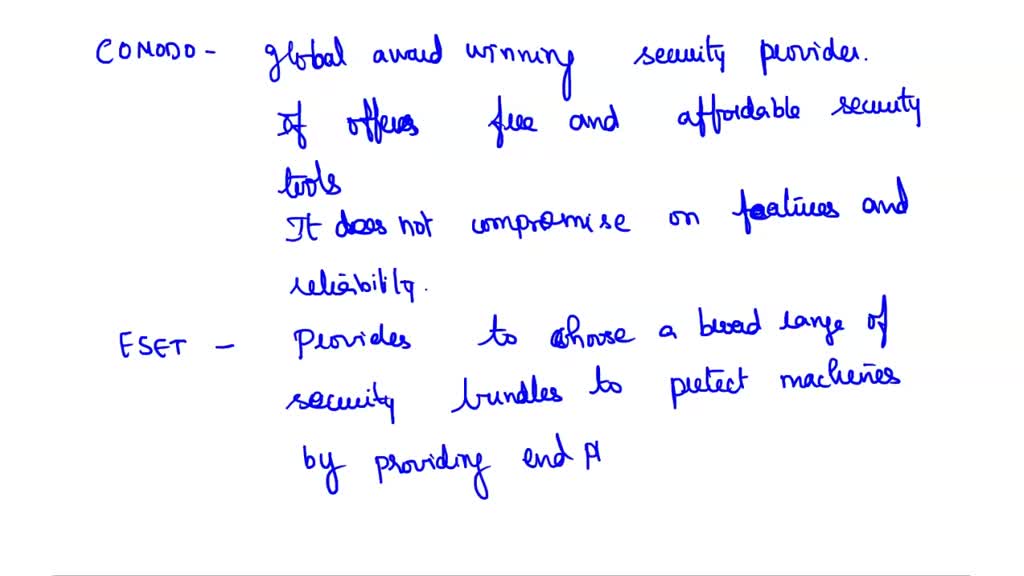 COMODO - global award winning security provider.
If offers free and affordable security
tools
It does not compromise on features and
reliability.
ESET - Provides to choose a broad range of
security bundles to protect machines
by providing end p